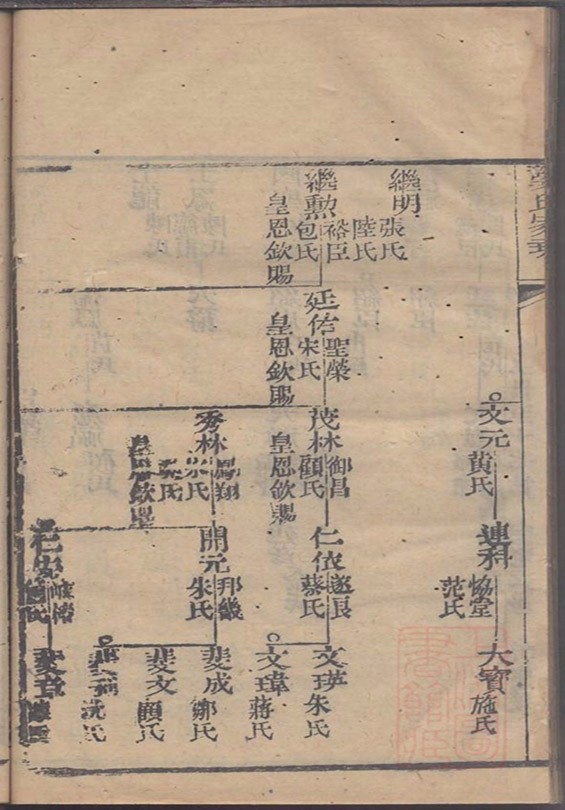 繼明 張氏
陸氏
繼勲 裕臣
包氏
皇恩欽賜
廷佐 聖榮
宋氏
皇恩欽賜
文元 黄氏
茂林 御昌
顧氏
皇恩欽賜
秀林 鳳翔
氏
氏
皇恩欽
連科 協堂
范氏
仁依 遂良
蔡氏
開元 邦畿
朱氏
氏
大寳 施氏
文瑛 朱氏
文瑋 蔣氏
斐成 鄒氏
斐文 顧氏
沈氏
斐章